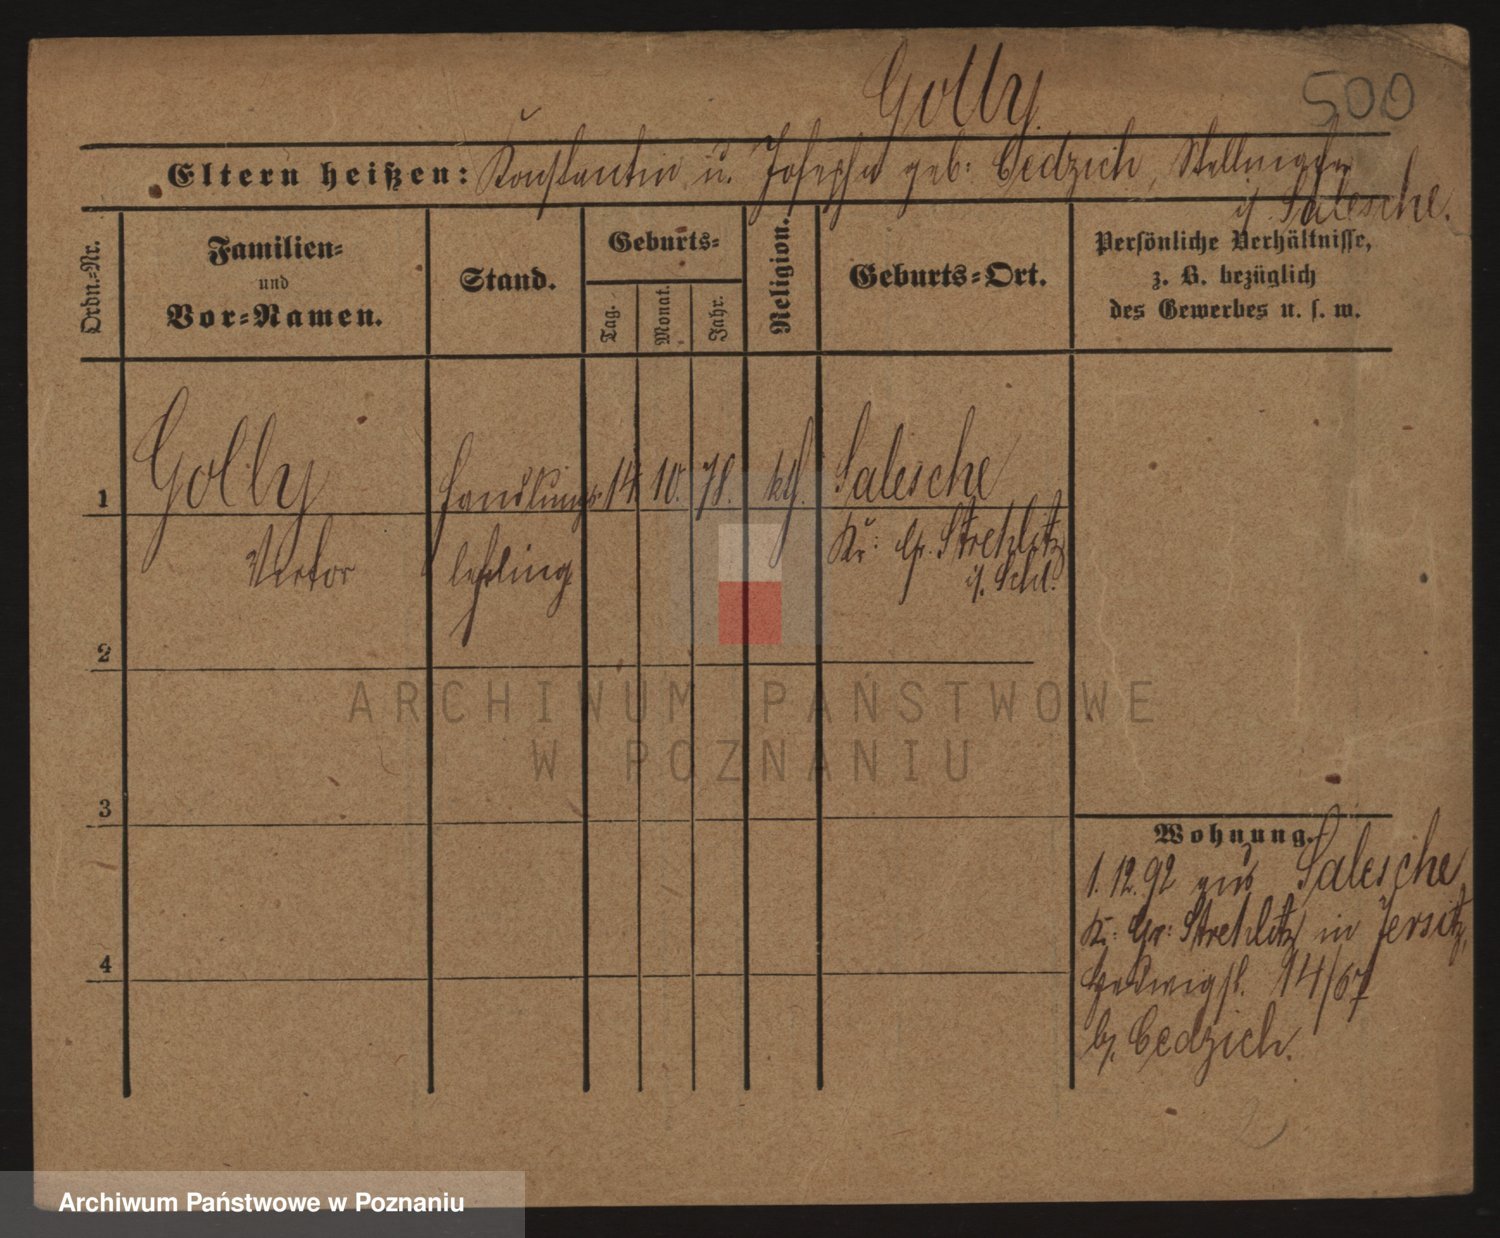 Golly.
500
Eltern heißen: Konstantin u. Josepha geb: Cedzich, Stellmacher
i/ Salesche.
Ordn.-Nr.
Familien-
und
Vor-Namen.
Stand.
Geburts-
Tag.
Monat.
Jahr.
Religion.
Geburts-Ort.
Persönliche Verhältnisse,
z. B. bezüglich
des Gewerbes u. s. w.
1 Golly Handlungs- 14. 10. 78. kth. Salesche
Victor lehrling Kr: Gr. Strehlitz
i/. Schl.
2
ARCHIWUM PAŃSTWOWE
W POZNANIU
3
4
Wohnung.
1.12.92 aus Salesche
Kr: Gr: Strehlitz in Jersitz,
Hedwigst. 14/67
b/. Cedzich.
Archiwum Państwowe w Poznaniu